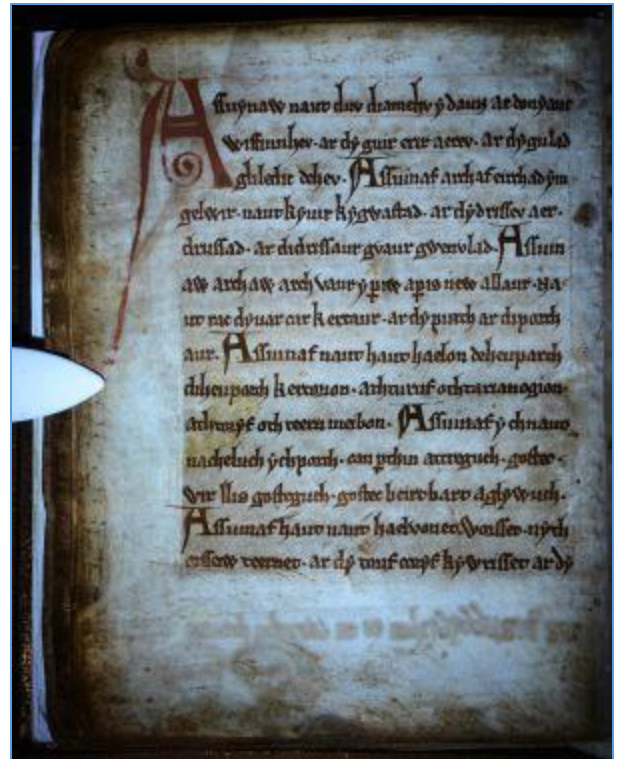 Assuynaw naut duv diamehv y daun ae donyauc
wiffuinhev. ar dy guir erir aerev. ar dy gulad
guledic dehev. Assuinaf archaf eirchad ym
gelwir. naut kyuir kygwastad. ar dy drissev aer.
drussad. ar didrissaur gvaur gwenvlad. Assuin
aw archaw arch vaur y p̲iw ap̲is new allaur. Na
ut rac dy uar car kertaur. ar dy purth ar diporth
aur. Assuinaf naut haut haelon deheuparth
diheuporth kertorion. athturuf othtarianogion.
athtoryf oth teern meibon. Assuinaf ych naut
nacheluch ych porth. can p̲thin attreguch. gostec.
wir llis gosteguch. gostec beirt bart aglywuch.
Assuinaf haut naut haelvonet nyth
teernet. ar dy toruf toryf kywrisset ar dy